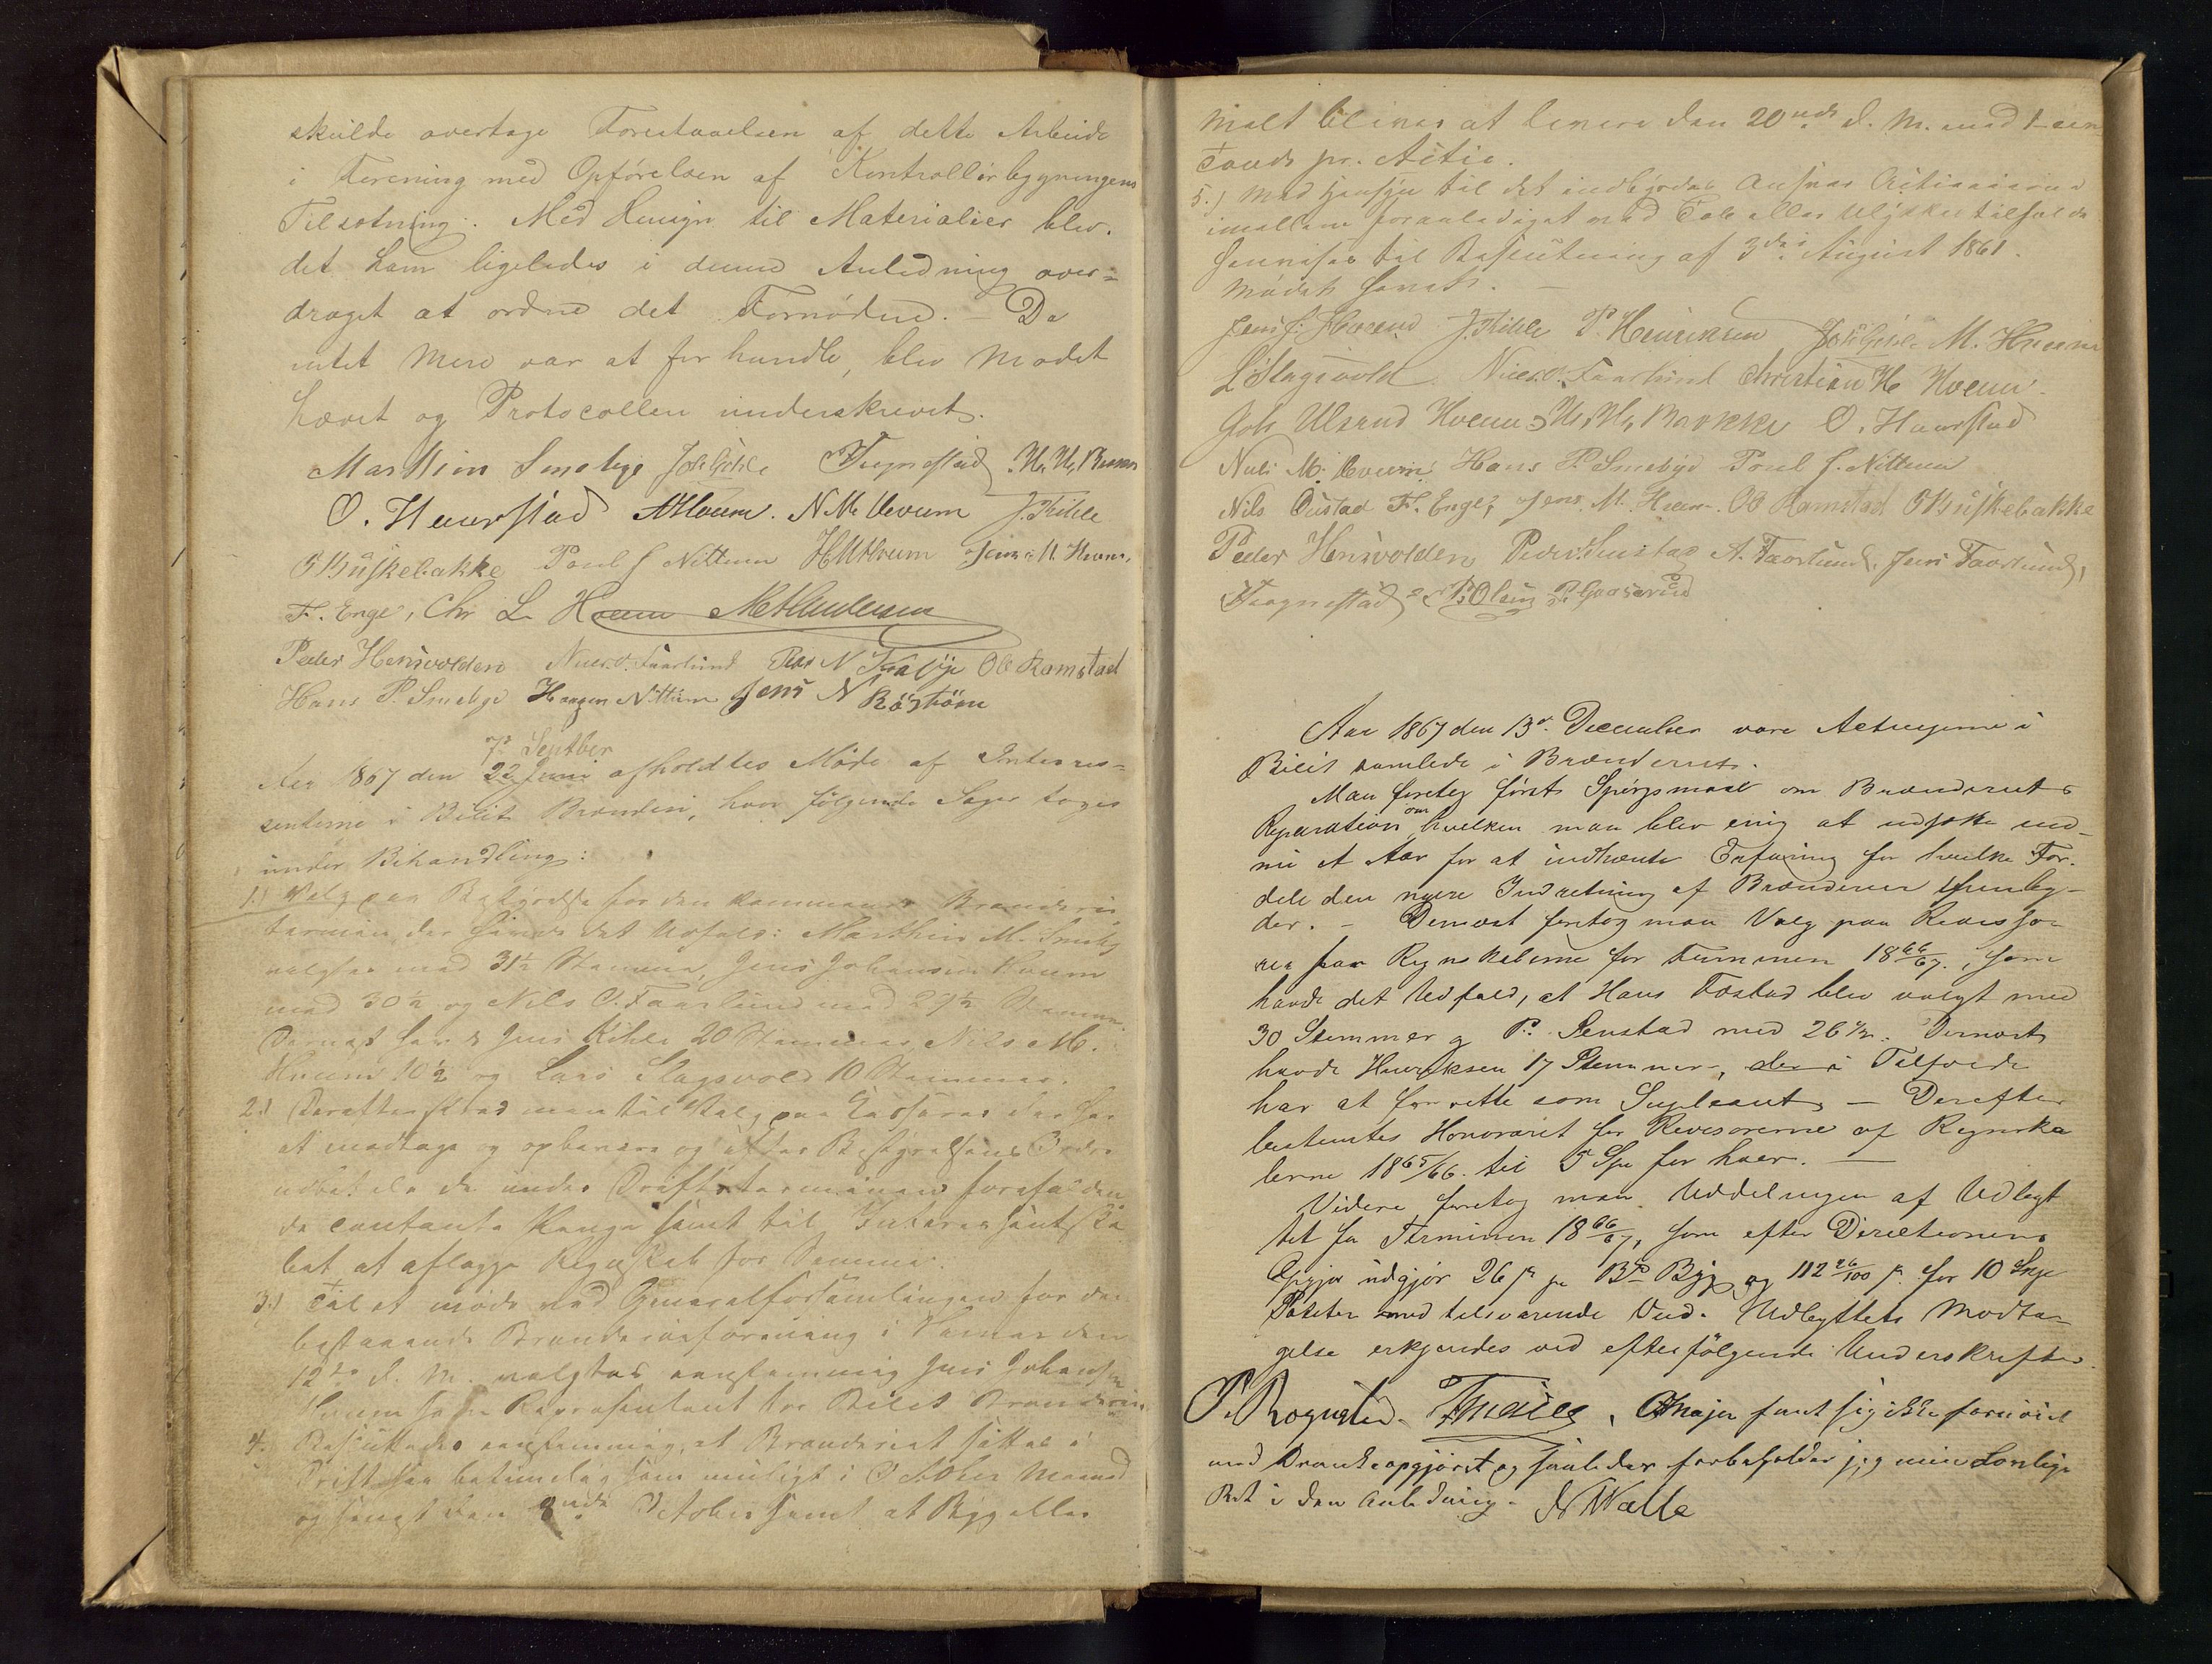 skulde overtage Forestaaelsen af dette Arbeide
i Forening med Opførelsen af Kontrollørbygningens
Tilsætning. Med Hensyn til Materialier blev
det ham ligeledes i denne Anledning over=
draget at ordne det Fornødne. – Da
intet mere var at forhandle, blev Mødet
hævet og Protocollen underskrevet.
Marthin Smebye Joh Gihle Fregnestad
O. Haarstad N. M. Hveem J. Kihle
O Buskebakke Poul J Nittum Jens M. Hveem
F. Enge, Chr L. Hveem
Peder Hensvolden Niels O. Faarlund Ole Ramstad
Hans P. Smebye Haagen Nittum Jens N Röström
7de Septber
Aar 1867 den 22 Juni afholdtes Møde af Interes=
senterne i Bilit Brænderi, hvor følgende Sager toges
under Behandling:
1.) Valg paa Bestyrelse for den kommende Brænderi
termin, der havde det Udfald: Marthin M. Smeby
valgtes med 31½ Stemme, Jens Johansen Hveem
med 30½ og Nils O. Faarlund med 27½ Stemme.
Dernæst havde Jens Kihle 20 Stemmer, Nils M.
Hveem 10½ og Lars Slagsvold 10 Stemmer.
2.) Derefter skred man til Valg paa Casserer der har
at modtage og opbevare og efter Bestyrelsens Ordre
udbetale de under Driftsterminen forefaldende
contante Penge samt til Interessentska
bet at aflægge Regnskab for Samme.
3.) Til at møde ved Generalforsamlingen for den
bestaaende Brænderiforening i Hamar den
12te d. M. valgtes eenstemmig Jens Johansen
Hveem som Repræsentant for Bilit Brænderi.
4. Besluttedes eenstemmig, at Brænderiet sættes i
Drift saa betimelig som muligt i October Maaned
og senest den 8nde October samt at Byg eller
Malt blives at levere den 20nde d. M. med 1 een
Tønde pr. Actie.
5.) Med Hensyn til det indbyrdes Ansvar Actionærerne
imellem foranlediget ved Tab eller Ulykkestilfælde
henvises til Beslutning af 3die August 1861.
Mødet hævet. –
Jens J. Hveem J. Kihle P. Henriksen Joh Gihle M. Hveem
L. Slagsvold. Niels O. Faarlund Christian H Hveem
Joh Ulsrud Hveem Bakke O. Haarstad
Nils M. Hveem Hans P. Smebye Poul J. Nittum
Nils Østad F. Enge, Jens M. Hveem. Ole Ramstad O Buskebakke
Peder Hensvolden A. Faarlund. Jens Faarlund,
Fregnestad P. Olsen
Aar 1867 den 13de December vare Actieeierne i
Bilit samlede i Brænderiet.
Man foretog først Spørgsmaal om Brænderiets
Reparation om hvilken man blev enig at udsætte end-
nu et Aar for at indhente Erfaring for hvilke For-
dele den nyere Indretning af Brænderier frembyder.
– Dernæst foretog man Valg paa Revisso-
rer for Regnskaberne for Terminen 1866/67, som
havde det Udfald, at Hans Tøstad blev valgt med
30 Stemmer og P. Senstad med 26½. Dernæst
havde Henriksen 17 Stemmer, der i Tilfælde
har at forrette som Supleant. – Derefter
bestemtes Honoraret for Revisorerne af Regnska
berne 1865/66 til 5 Spd for hver. –
Videre foretog man Uddelingen af Udbyt
tet for Terminen 1866/67, som efter Directionens
Opgjør udgjør 26 p pr Byg og 112 26/100 p. for 10 Skpr
Poteter med tilsvarende Ved. Udbyttets Modta-
gelse erkjendes ved efterfølgende Underskrifter.
P. Rognstad. jeg ikke fornøiet
med Drankeopgjøret og saaledes forbeholder jeg min Lovlige
Ret i den Anledning. N Walle